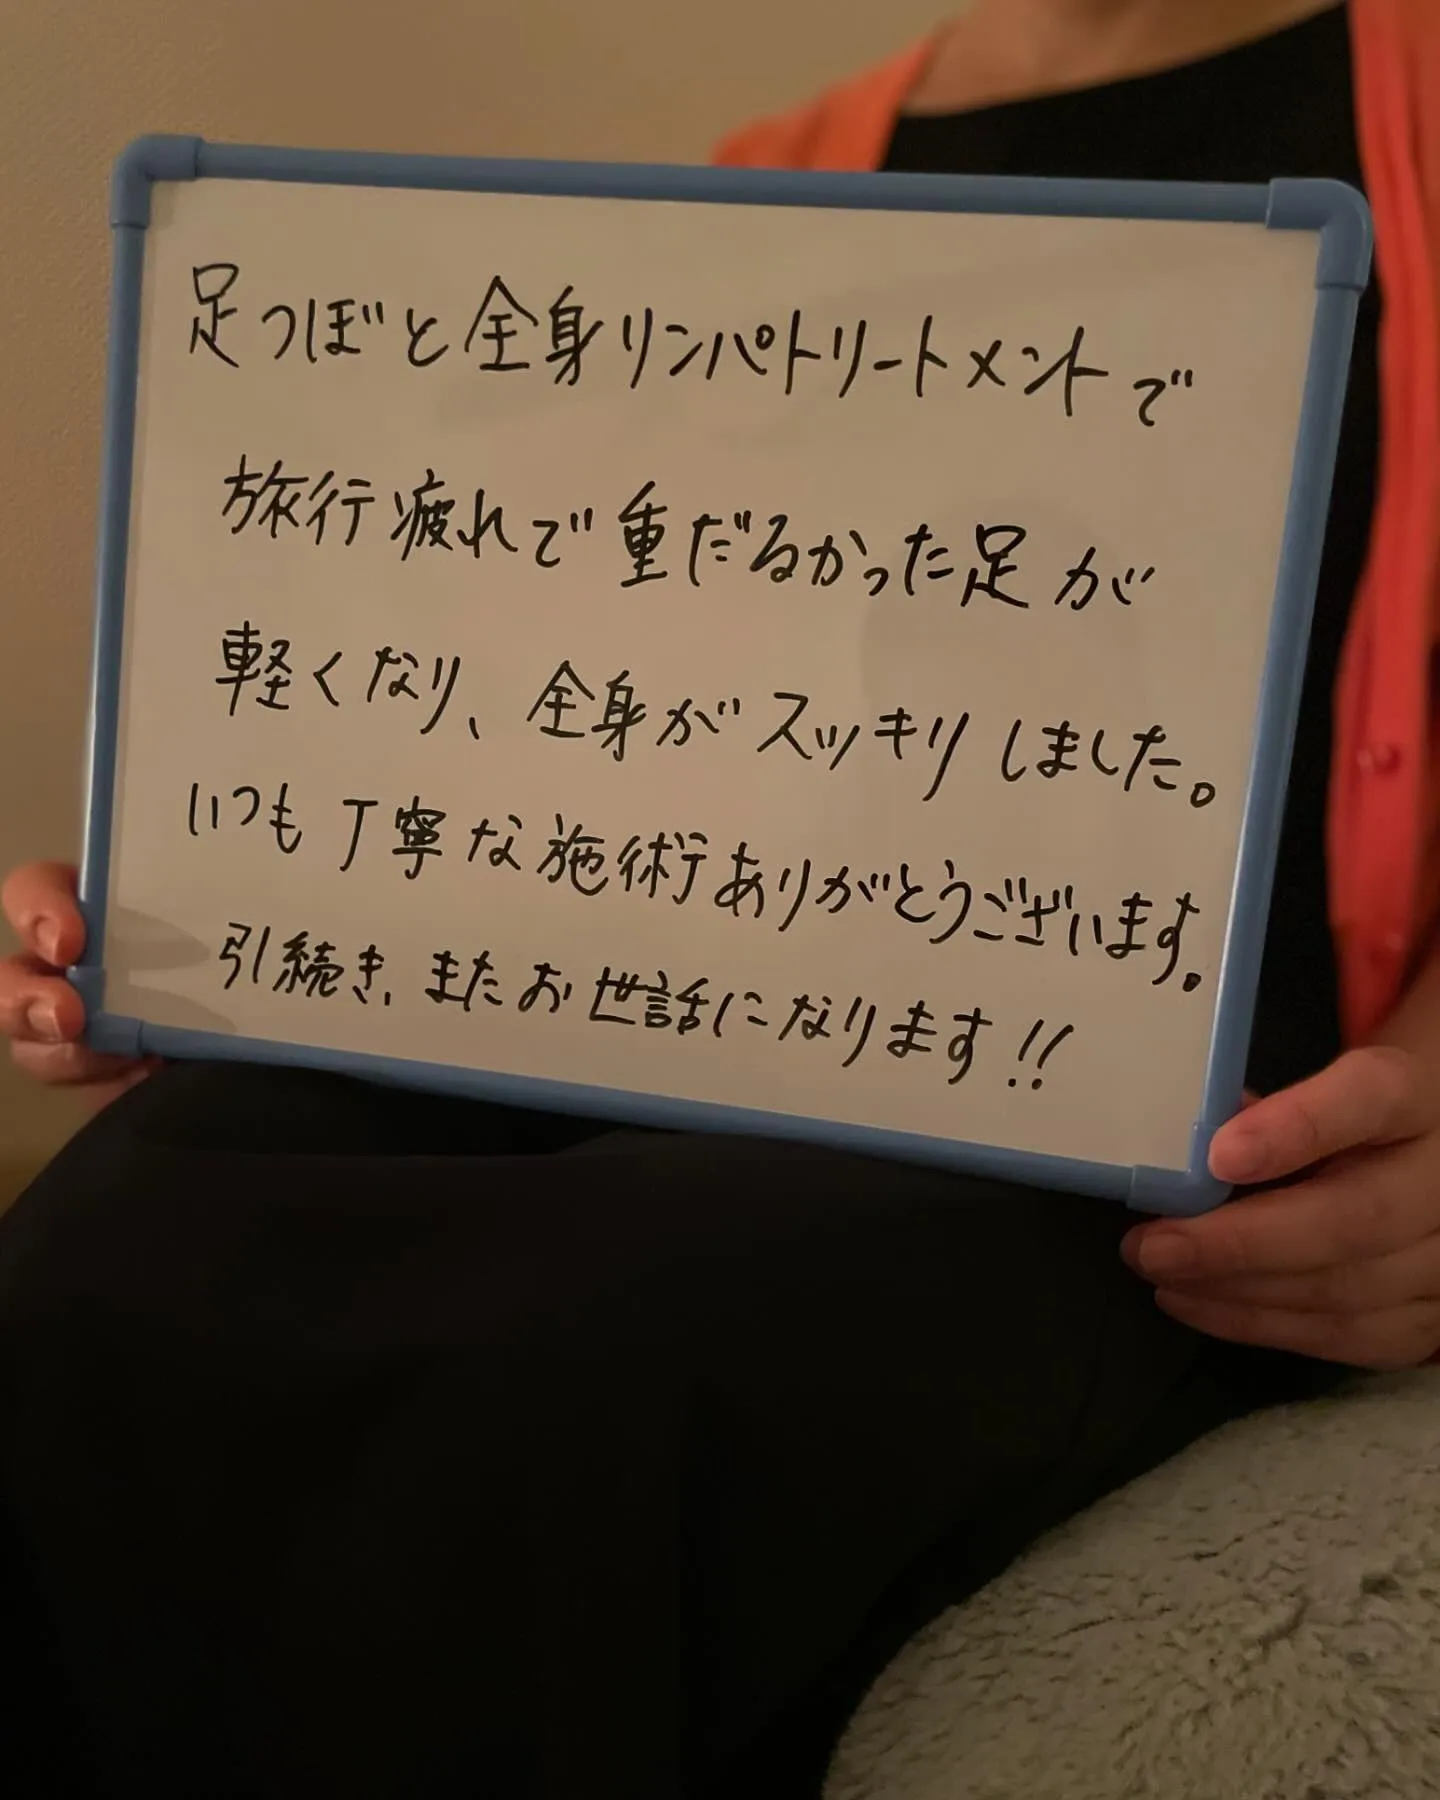 足つぼと全身リンパトリートメントで
旅行疲れで重だるかった足が
軽くなり、全身がスッキリしました。
いつも丁寧な施術ありがとうございます。
引続き、またお世話になります!!